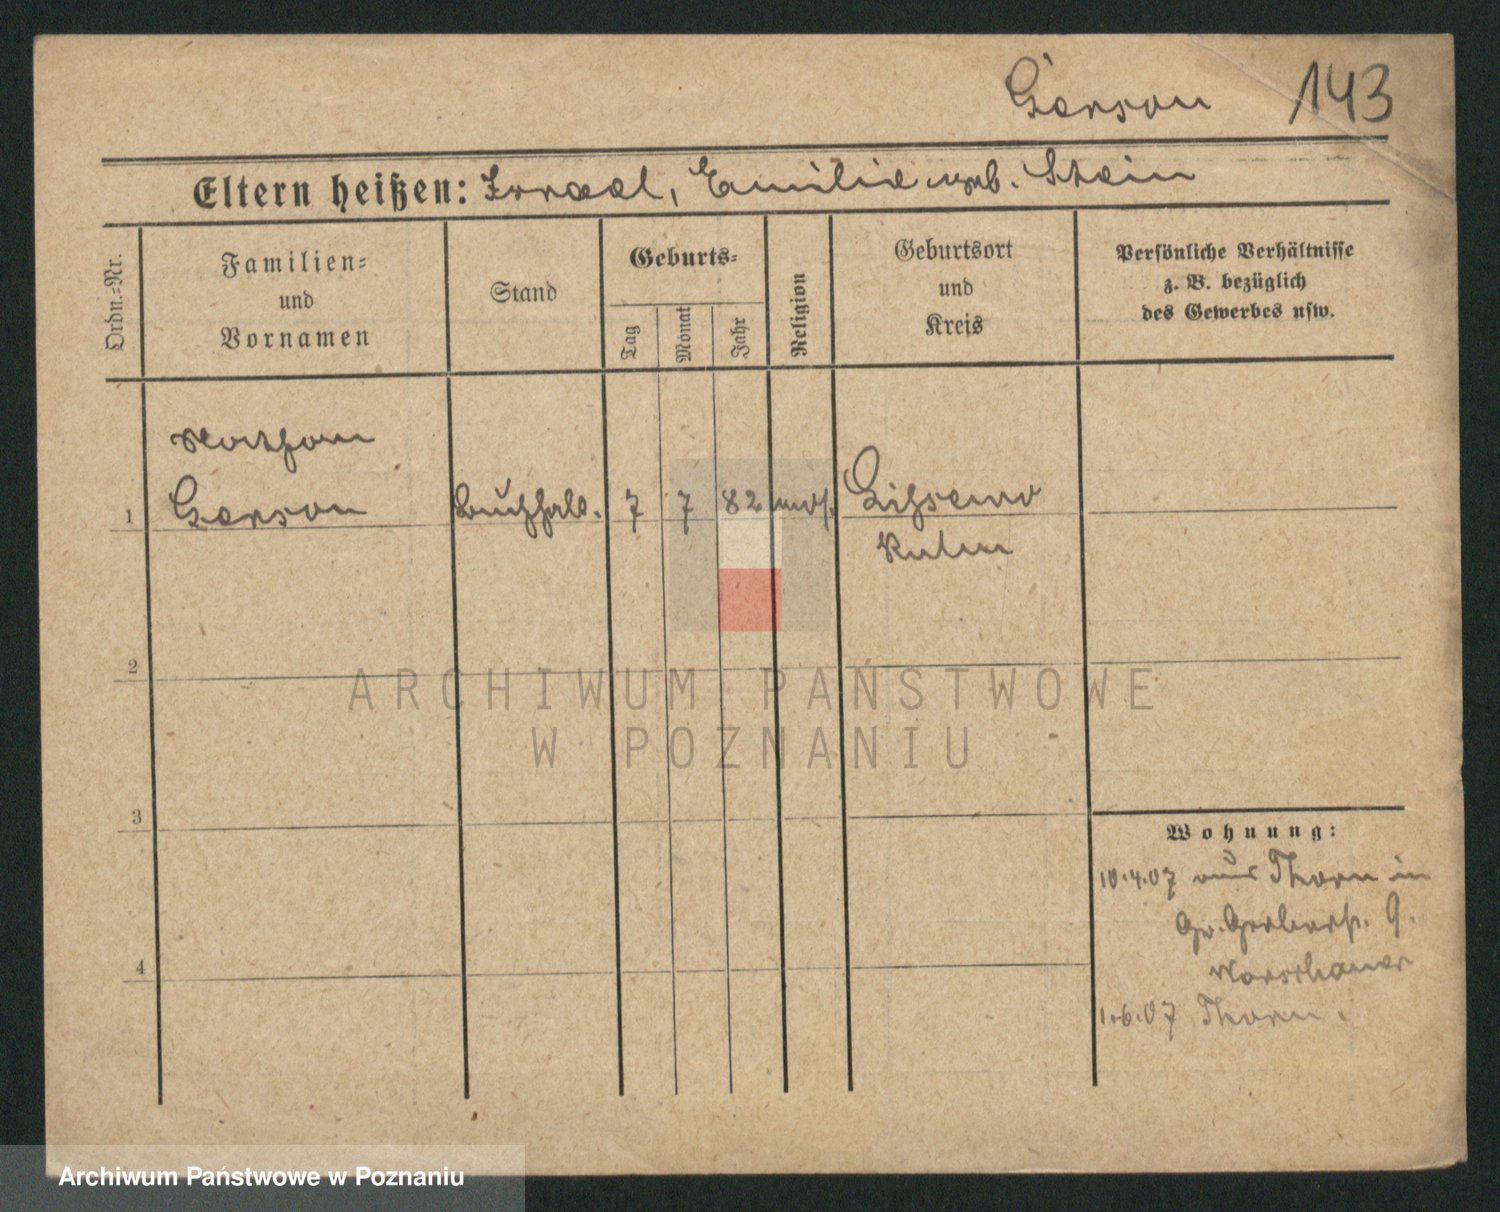 Gerson 143
Eltern heißen: Israel, Emilie geb. Stein
Ordn.-Nr.
Familien-
und
Vornamen
Stand
Geburts-
Tag
Monat
Jahr
Religion
Geburtsort
und
Kreis
Persönliche Verhältnisse
z. B. bezüglich
des Gewerbes usw.
Nathan
1 Gerson Buchhalt. 7 7 82 mos.
Kulm
2
3
4
Wohnung:
10.4.07 aus Thorn in
Gr. Gerberstr. 9.
Warschauer
1.6.07 Thorn.
ARCHIWUM PAŃSTWOWE
W POZNANIU
Archiwum Państwowe w Poznaniu